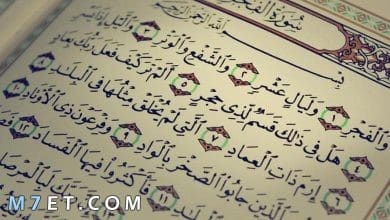 سُورَةُ الفَجْرِ
بِسْمِ اللَّهِ الرَّحْمَٰنِ الرَّحِيمِ
وَالْفَجْرِ ١ وَلَيَالٍ عَشْرٍ ٢ وَالشَّفْعِ وَالْوَتْرِ ٣ وَالَّيْلِ إِذَا يَسْرِ
٤ هَلْ فِي ذَٰلِكَ قَسَمٌ لِّذِي حِجْرٍ ٥ أَلَمْ تَرَ كَيْفَ فَعَلَ رَبُّكَ بِعَادٍ
٦ إِرَمَ ذَاتِ الْعِمَادِ ٧ الَّتِي لَمْ يُخْلَقْ مِثْلُهَا فِي الْبِلَٰدِ ٨
الَّذِينَ جَابُوا الصَّخْرَ بِالْوَادِ ٩ وَفِرْعَوْنَ ذِي الْأَوْتَادِ ١٠
١١ فَأَكْثَرُوا فِيهَا الْفَسَادَ ١٢
لَبِالْمِرْصَا
M7ET.COM